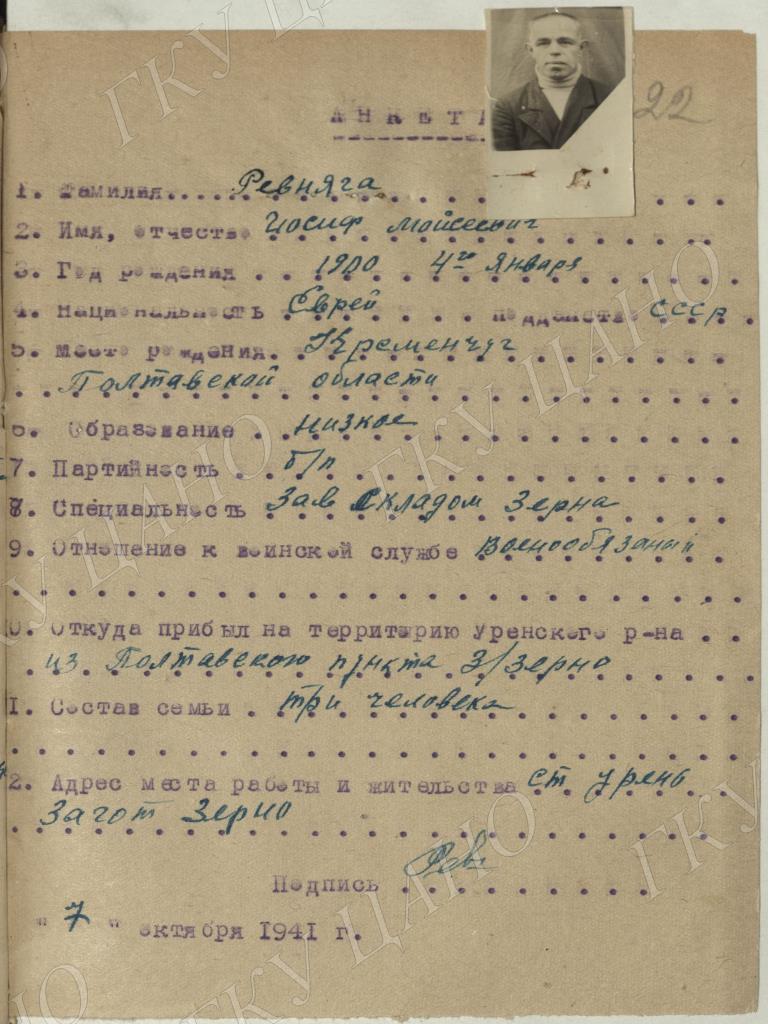 22
АНКЕТА
1. Фамилия. Ревняга
2. Имя, отчество Иосиф Мойсеевич
3. Год рождения . . 1900 4го Января
4. Национальность Еврей . . . . подданство СССР
5. Место рождения. Кременчуг
Полтавской области
6. Образование . низкое
7. Партийность . б/п
8. Специальность Зав Складом Зерна
9. Отношение к воинской службе военообязаный
0. Откуда прибыл на территорию Уренского р-на . .
из Полтавского пункта З/зерно
1. Состав семьи . три человека
2. Адрес места работы и жительства ст Урень
Загот Зерно
Подпись Рев
" 7 " октября 1941 г.
ГКУ ЦАНО